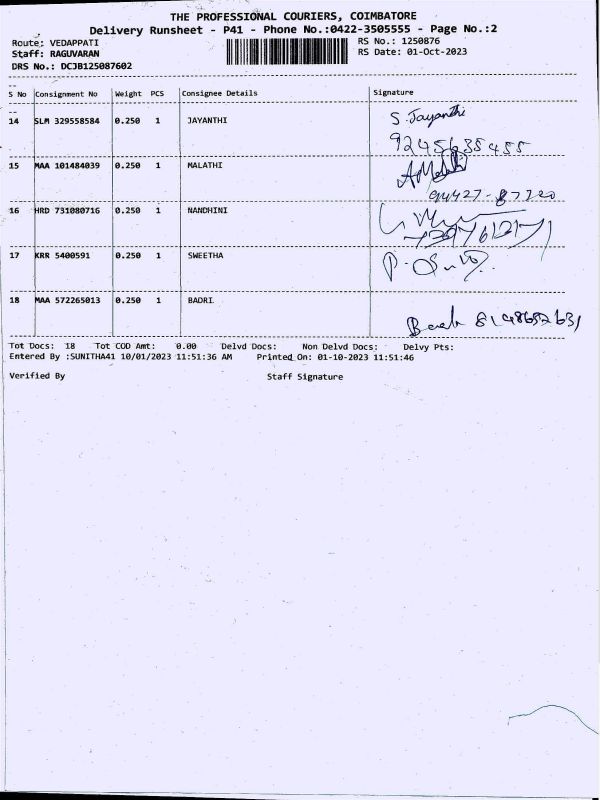 THE PROFESSIONAL COURIERS, COIMBATORE
Delivery Runsheet - P41 - Phone No.:0422-3505555 - Page No.:2
Route: VEDAPPATI
RS No.: 1250876
Staff: RAGUVARAN
RS Date: 01-Oct-2023
DRS No.: DCJB125087602
S No Consignment No Weight PCS Consignee Details Signature
14 SLM 329558584 0.250 1 JAYANTHI S. Jayanthi
15 MAA 101484039 0.250 1 MALATHI
94427-87220
16 HRD 731080716 0.250 1 NANDHINI
17 KRR 5400591 0.250 1 SWEETHA
18 MAA 572265013 0.250 1 BADRI
Tot Docs: 18 Tot COD Amt: 0.00 Delvd Docs: Non Delvd Docs: Delvy Pts:
Entered By :SUNITHA41 10/01/2023 11:51:36 AM Printed On: 01-10-2023 11:51:46
Verified By Staff Signature